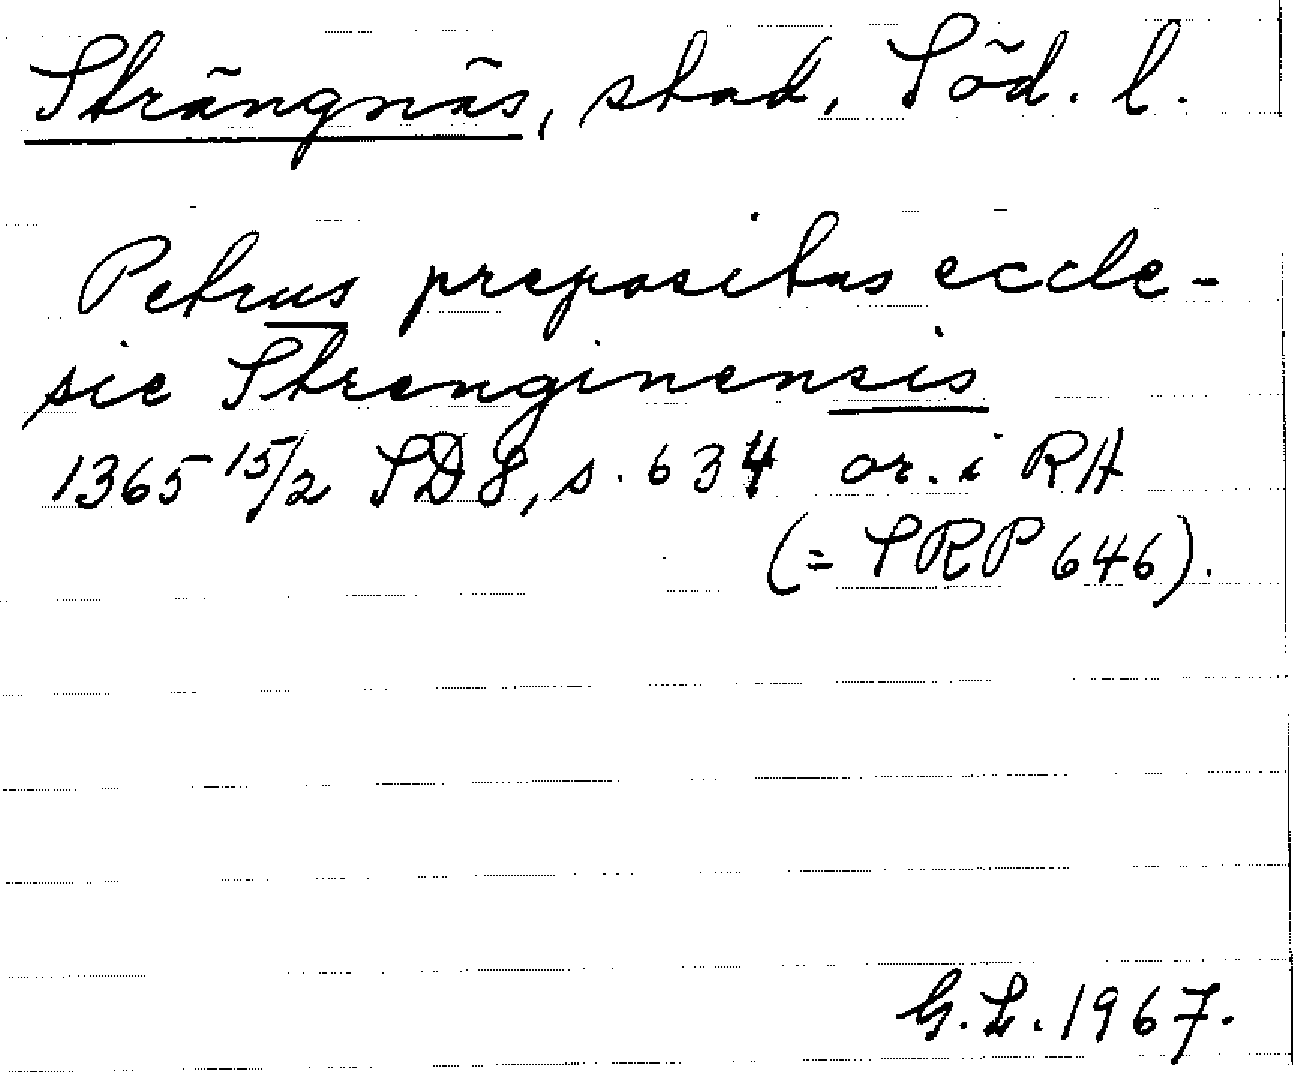 Strängnäs, stad, Söd. l.
Petrus prepositus eccle-
sie Strenginensis
1365 15/2 SD 8, s. 634 or. i RA
(= SRP 646).
G.L. 1967.